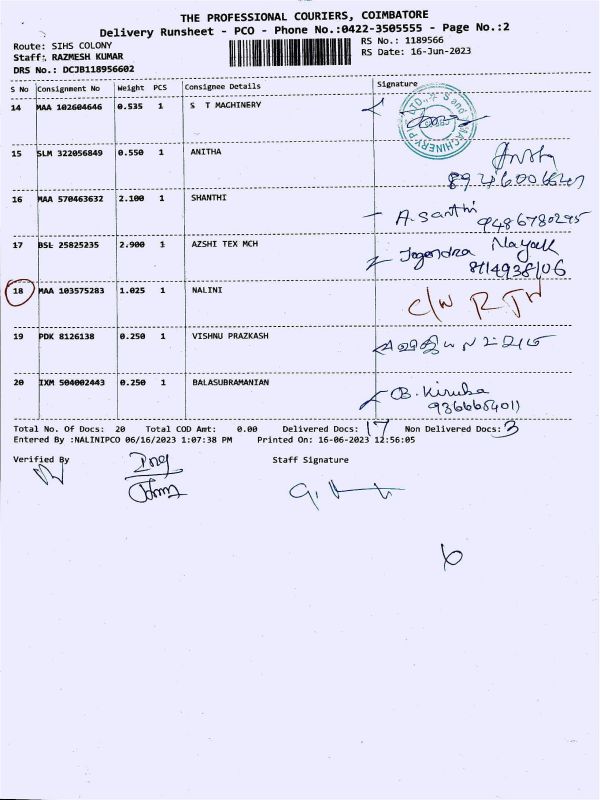 THE PROFESSIONAL COURIERS, COIMBATORE
Delivery Runsheet - PCO - Phone No.:0422-3505555 - Page No.:2
Route: SIHS COLONY
RS No.: 1189566
Staff: RAZMESH KUMAR
RS Date: 16-Jun-2023
DRS No.: DCJB118956602
S No Consignment No Weight PCS Consignee Details Signature
14 MAA 102604646 0.535 1 S T MACHINERY
15 SLM 322056849 0.550 1 ANITHA
16 MAA 570463632 2.100 1 SHANTHI
A. Santhi
9486780295
17 BSL 25825235 2.900 1 AZSHI TEX MCH
Jogendra Nayak
18 MAA 103575283 1.025 1 NALINI
C/N RTN
19 PDK 8126138 0.250 1 VISHNU PRAZKASH
20 IXM 504002443 0.250 1 BALASUBRAMANIAN
B. Kiruba
Total No. Of Docs: 20 Total COD Amt: 0.00 Delivered Docs: 17 Non Delivered Docs: 3
Entered By :NALINIPCO 06/16/2023 1:07:38 PM Printed On: 16-06-2023 12:56:05
Verified By Staff Signature